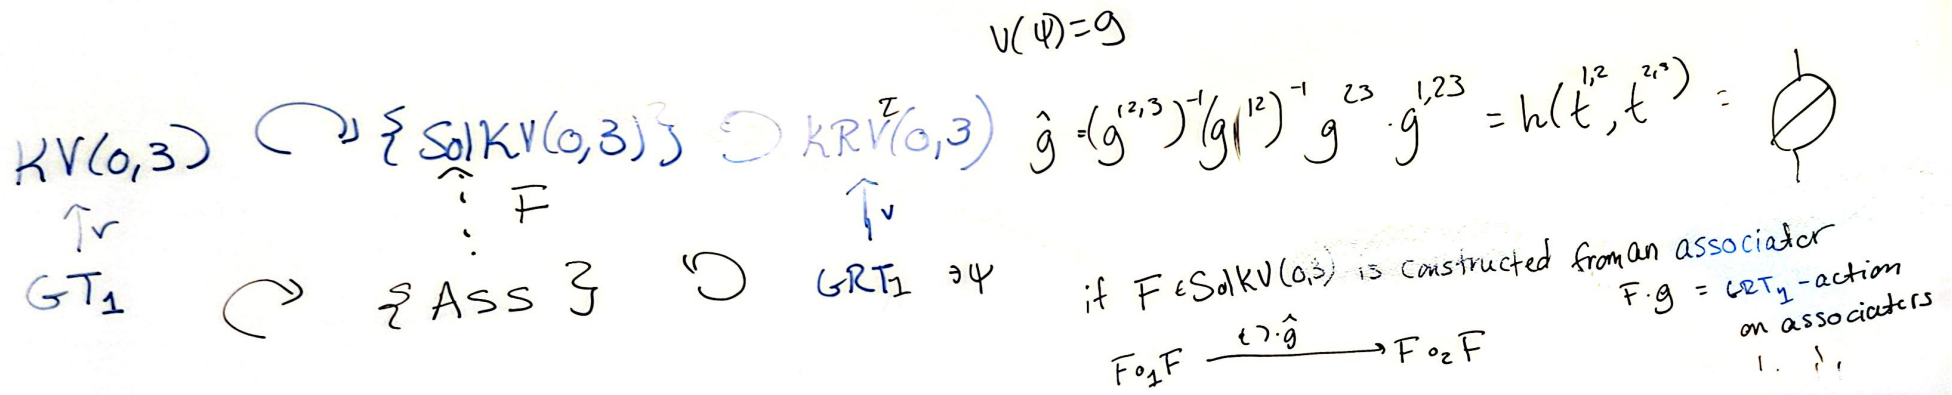 ν(ψ)=g
KV(0,3) ↷ {SolKV(0,3)} ↶ KRV^τ(0,3) ĝ = (g^{12,3})^{-1}(g^{12})^{-1} g^{23} · g^{1,23} = h(t^{1,2}, t^{2,3}) =
↑ν F ↑ν
GT₁ ↷ {Ass} ↶ GRT₁ ∋ψ
if F ∈ SolKV(0,3) is constructed from an associator
F·g = GRT₁-action
on associators
F∘₁F —( )·ĝ→ F∘₂F